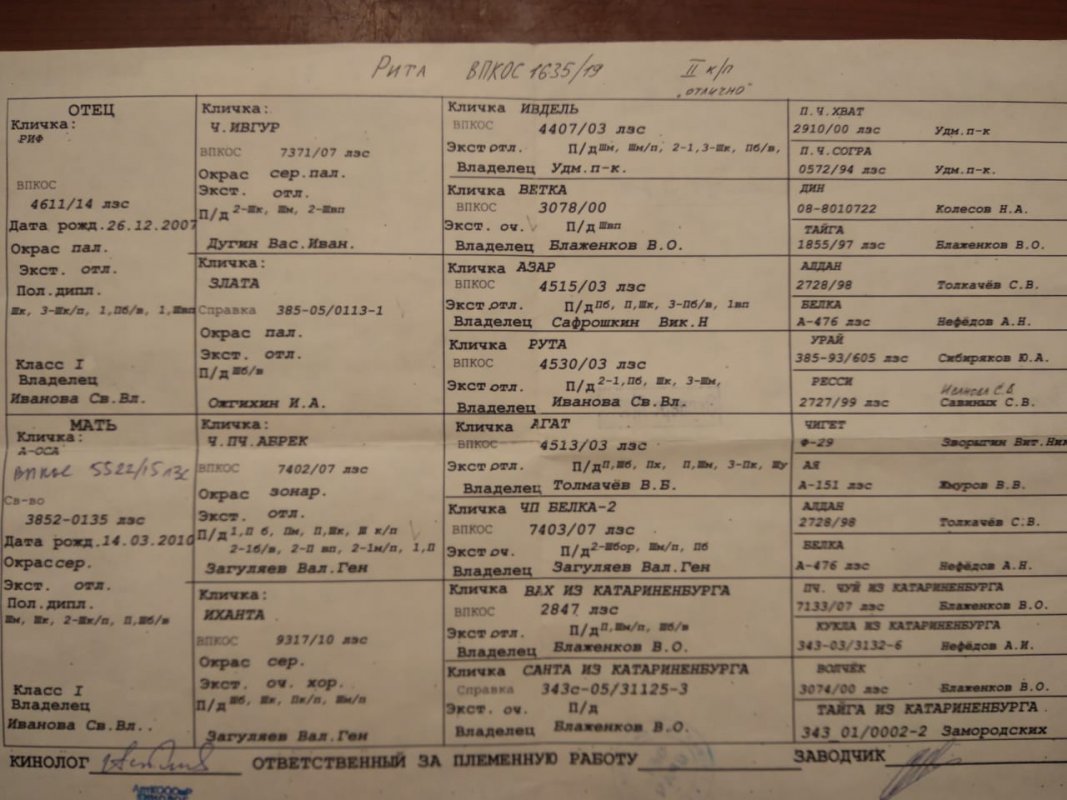 Рита ВПКОС 1635/19 II к/п
"отлично"
ОТЕЦ
Кличка:
РИФ
ВПКОС
4611/14 лэс
Дата рожд.26.12.2007
Окрас пал.
Экст. отл.
Пол.дипл.
Шк, 3-Шк/п, 1,Пб/в, 1,Швп
Класс I
Владелец
Иванова Св.Вл.
Кличка:
Ч.ИВГУР
ВПКОС 7371/07 лэс
Окрас сер.пал.
Экст. отл.
П/д 2-Шк, Шм, 2-Швп
Дугин Вас.Иван.
Кличка:
ЗЛАТА
Справка 385-05/0113-1
Окрас пал.
Экст. отл.
П/д Шб/в
Ожгихин И.А.
Кличка ИВДЕЛЬ
ВПКОС 4407/03 лэс
Экст отл. П/д Шм, Шм/п, 2-1,3-Шк, Пб/в,
Владелец Удм.п-к.
Кличка ВЕТКА
ВПКОС 3078/00
Экст. оч. П/д Швп
Владелец Блаженков В.О.
Кличка АЗАР
ВПКОС 4515/03 лэс
Экст отл. П/д Пб, П,Шк, 3-Пб/в, 1вп
Владелец Сафрошкин Вик.Н
Кличка РУТА
ВПКОС 4530/03 лэс
Экст отл. П/д 2-1,Пб, Шк, 3-Шм,
Владелец Иванова Св.Вл.
П.Ч.ХВАТ
2910/00 лэс Удм.п-к
П.Ч.СОГРА
0572/94 лэс Удм.п-к.
ДИН
08-8010722 Колесов Н.А.
ТАЙГА
1855/97 лэс Блаженков В.О.
АЛДАН
2728/98 Толкачёв С.В.
БЕЛКА
А-476 лэс Нефёдов А.Н.
УРАЙ
385-93/605 лэс Сибиряков Ю.А.
РЕССИ
Иванова С.В.
2727/99 лэс Савиных С.В.
МАТЬ
Кличка:
А-ОСА
ВПКОС 5522/15 лэс
Св-во
3852-0135 лэс
Дата рожд.14.03.2010
Окрас сер.
Экст. отл.
Пол.дипл.
Шм, Шк, 2-Шк/п, П,Шб/в
Класс I
Владелец
Иванова Св.Вл..
Кличка:
Ч.ПЧ.АБРЕК
ВПКОС 7402/07 лэс
Окрас зонар.
Экст. отл.
П/д 1,П б, Пм, П,Шк, Ш к/п
2-1б/в, 2-П вп, 2-1м/п, 1,П
Загуляев Вал.Ген
Кличка:
ИХАНТА
ВПКОС 9317/10 лэс
Окрас сер.
Экст. оч. хор.
П/д Шб, Шк, Пк/п, Шм/п
Загуляев Вал.Ген
Кличка АГАТ
ВПКОС 4513/03 лэс
Экст отл. П/д П,Шб, Пх, П,Шм, 3-Пк, Шу
Владелец Толмачёв В.Б.
Кличка ЧП БЕЛКА-2
ВПКОС 7403/07 лэс
Экст оч. П/д 2-Шбор, Шм/п, Пб
Владелец Загуляев Вал.Ген
Кличка ВАХ ИЗ КАТАРИНЕНБУРГА
ВПКОС 2847 лэс
Экст отл. П/д П,Шм/п, Шб/в
Владелец Блаженков В.О.
Кличка САНТА ИЗ КАТАРИНЕНБУРГА
Справка 343с-05/31125-3
Экст. оч. П/д
Владелец Блаженков В.О.
ЧИГЕТ
Ф-29 Зворыгин Вит.Ник
АЯ
А-151 лэс Жмуров В.В.
АЛДАН
2728/98 Толкачёв С.В.
БЕЛКА
А-476 лэс Нефёдов А.Н.
ПЧ. ЧУЙ ИЗ КАТАРИНЕНБУРГА
7133/07 лэс Блаженков В.О.
КУКЛА ИЗ КАТАРИНЕНБУРГА
343-03/3132-6 Нефёдов А.И.
ВОЛЧЁК
3074/00 лэс Блаженков В.О.
ТАЙГА ИЗ КАТАРИНЕНБУРГА
343 01/0002-2 Замородских
КИНОЛОГ ОТВЕТСТВЕННЫЙ ЗА ПЛЕМЕННУЮ РАБОТУ ЗАВОДЧИК